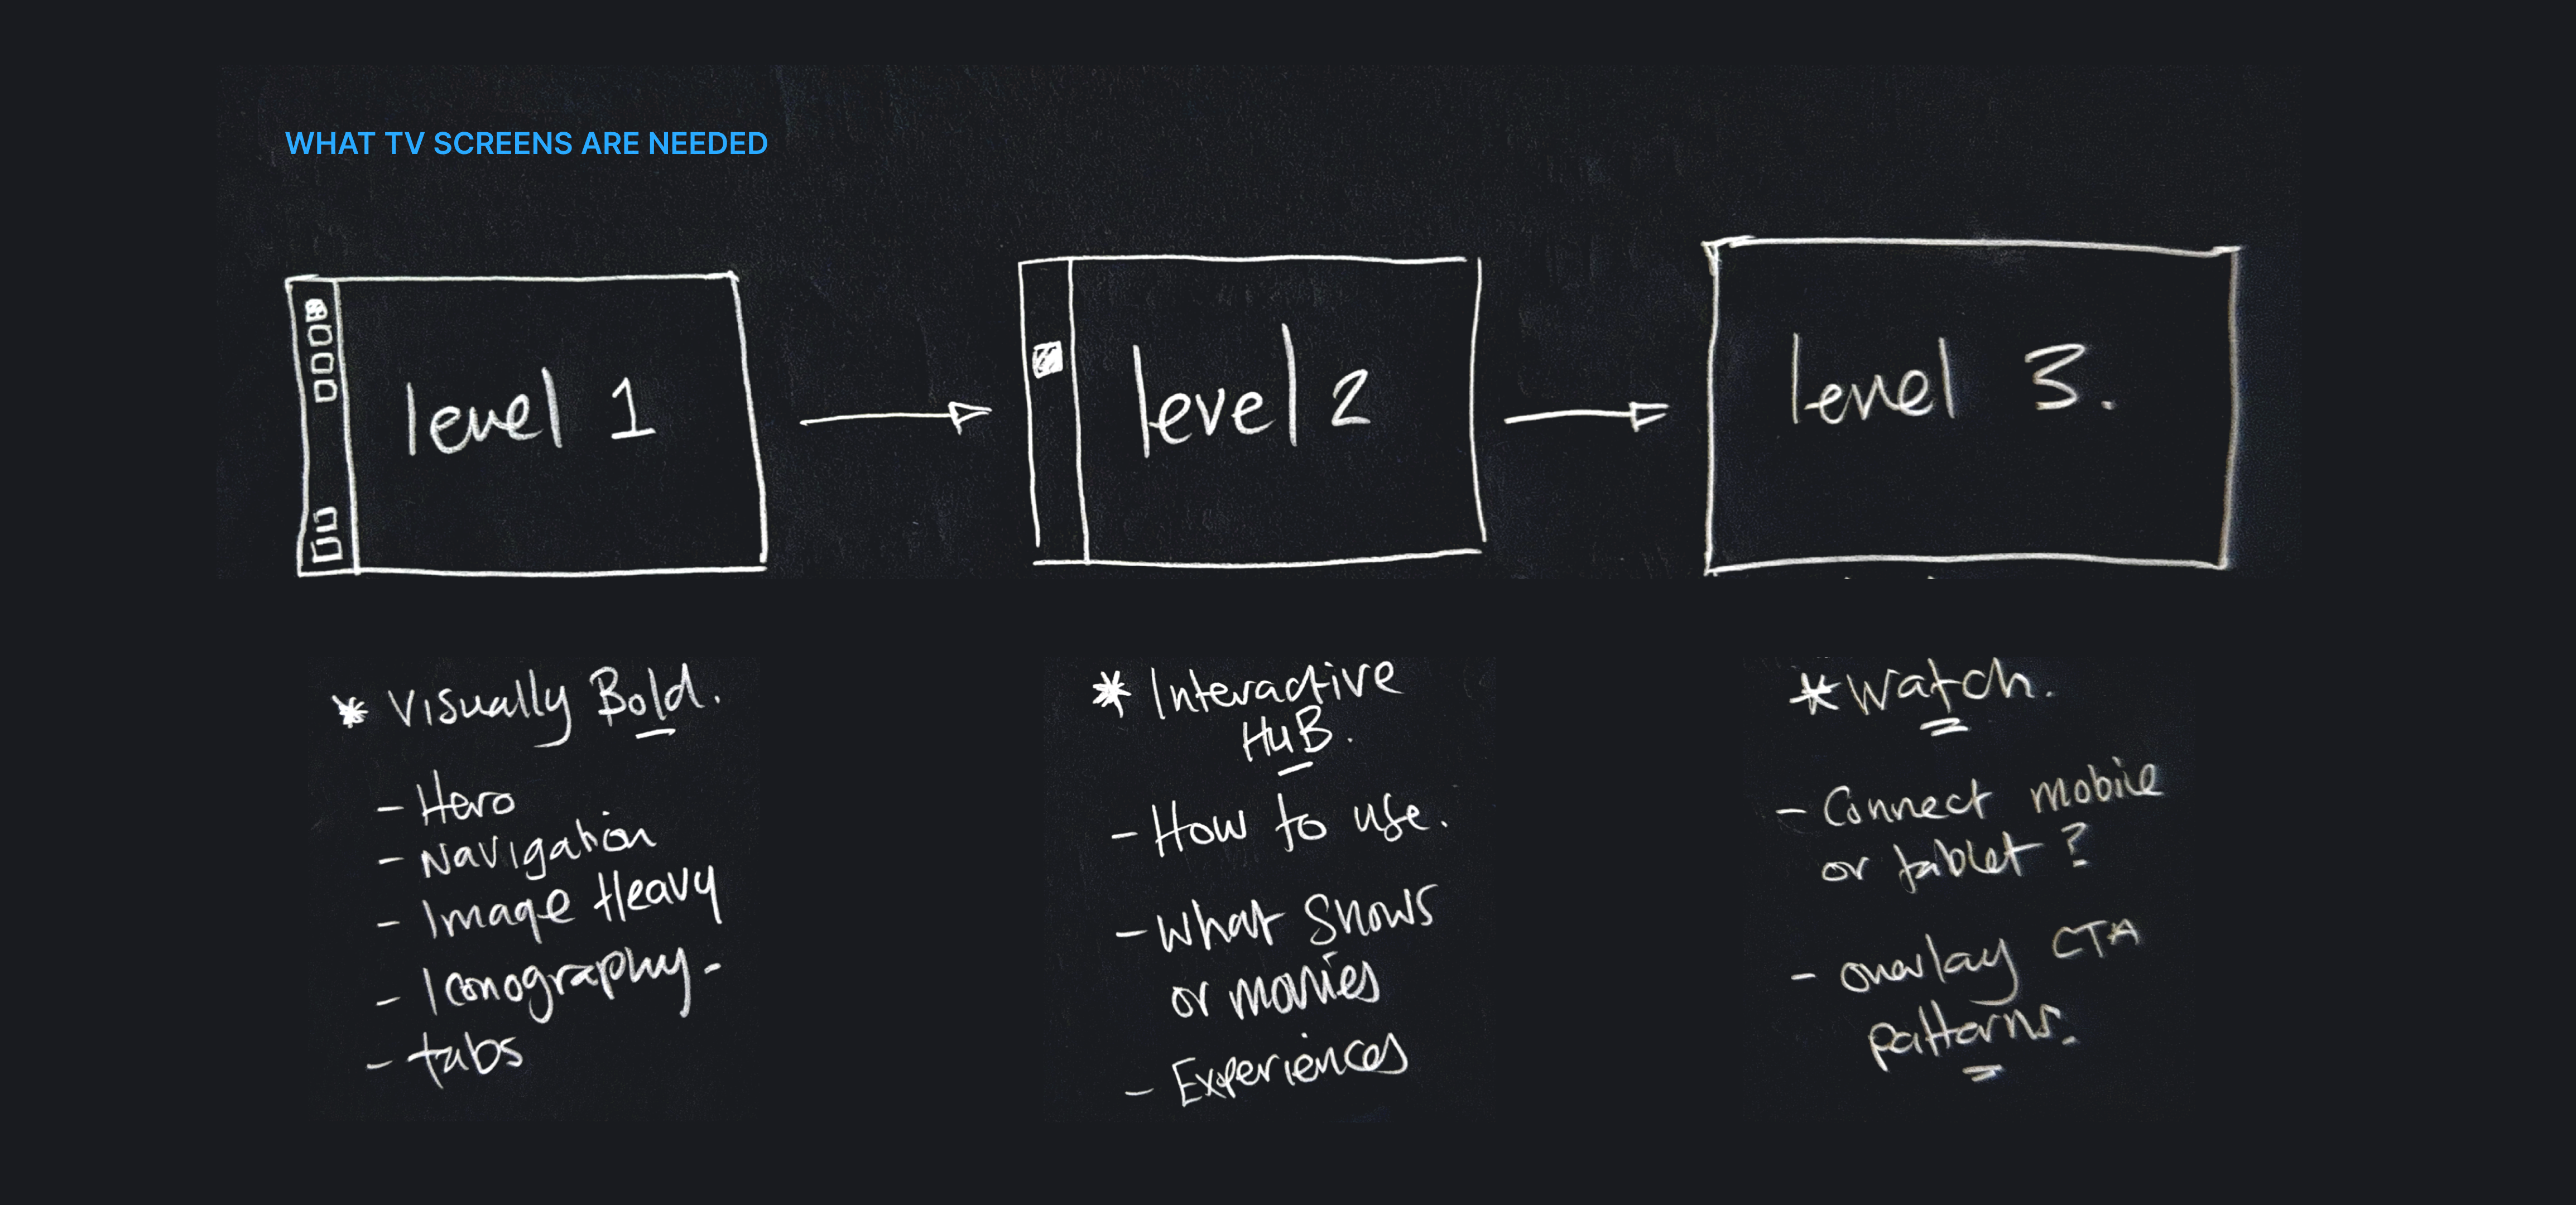 WHAT TV SCREENS ARE NEEDED
level 1
level 2
level 3.
* Visually Bold.
- Hero
- Navigation
- Image Heavy
- Iconography-
- tabs
* Interactive
HuB.
- How to use.
- What Shows
or movies
- Experiences
* Watch.
- Connect mobile
or tablet ?
- overlay CTA
patterns.